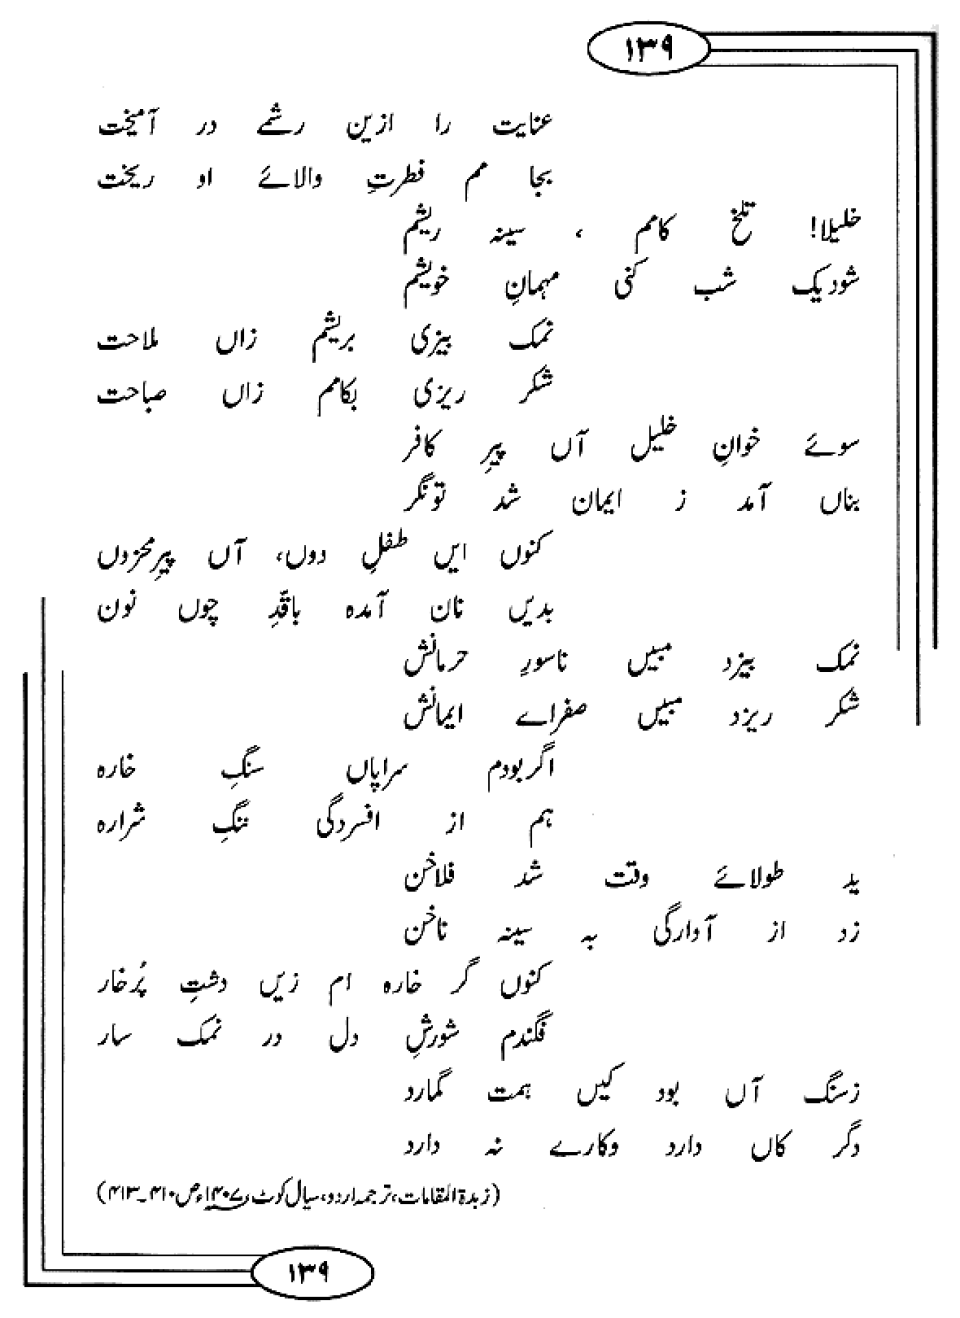 ۱۳۹
عنایت را ازین رشحے در آمیخت
بجا مم فطرتِ والائے او ریخت
خلیلا! تلخ کامم ، سینہ ریشم
شودیک شب کنی مہمانِ خویشم
نمک بیزی بریشم زاں ملاحت
شکر ریزی بکامم زاں صباحت
سوئے خوانِ خلیل آں پیرِ کافر
بناں آمد ز ایمان شد تونگر
کنوں ایں طفلِ دوں، آں پیرِمحزوں
بدیں نان آمدہ باقدِّ چوں نون
نمک بیزد مبیں ناسورِ حرمانش
شکر ریزد مبیں صفراے ایمانش
اگربودم سراپاں سنگِ خارہ
ہم از افسردگی ننگِ شرارہ
ید طولائے وقت شد فلاخن
زد از آدارگی بہ سینہ ناخن
کنوں گر خارہ ام زیں دشتِ پُرخار
فگندم شورشِ دل در نمک سار
زسنگ آں بود کیں ہمت گمارد
دگر کاں دارد وکارے نہ دارد
(زبدۃ المقامات، ترجمہ اردو، سیال کوٹ ۱۴۰۷ء ص ۴۱۰۔۴۱۳)
۱۳۹